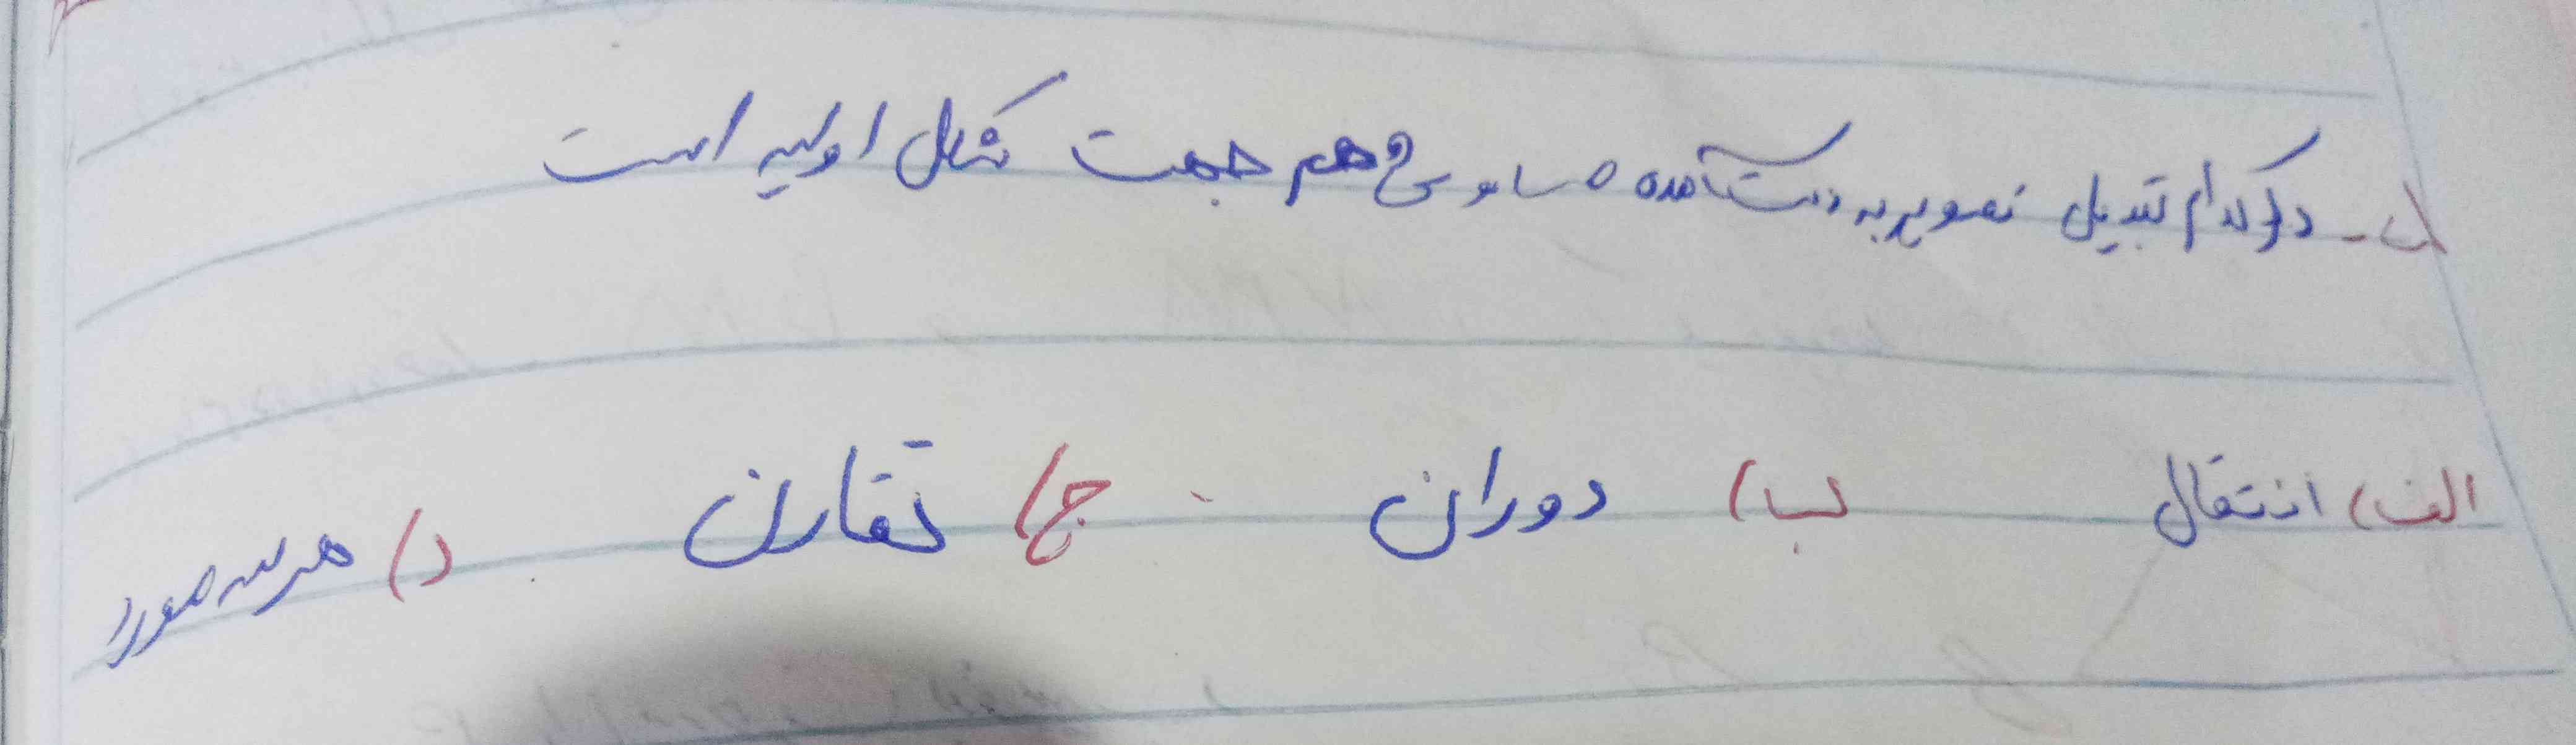 ب- در کدام تبدیل تصویر به دست آمده مساوی و هم جهت شکل اولیه است
الف) انتقال ب) دوران ج) تقارن د) هر سه مورد